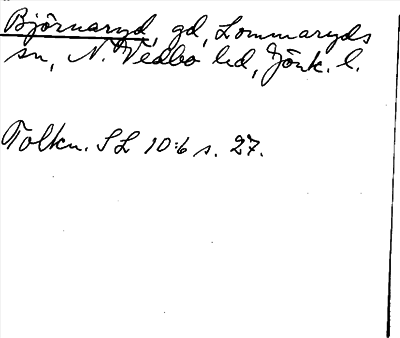 Björnaryd, gd, Lommaryds
sn, N. Vedbo hd, Jönk. l.
Tolkn. SL 10:6 s. 27.